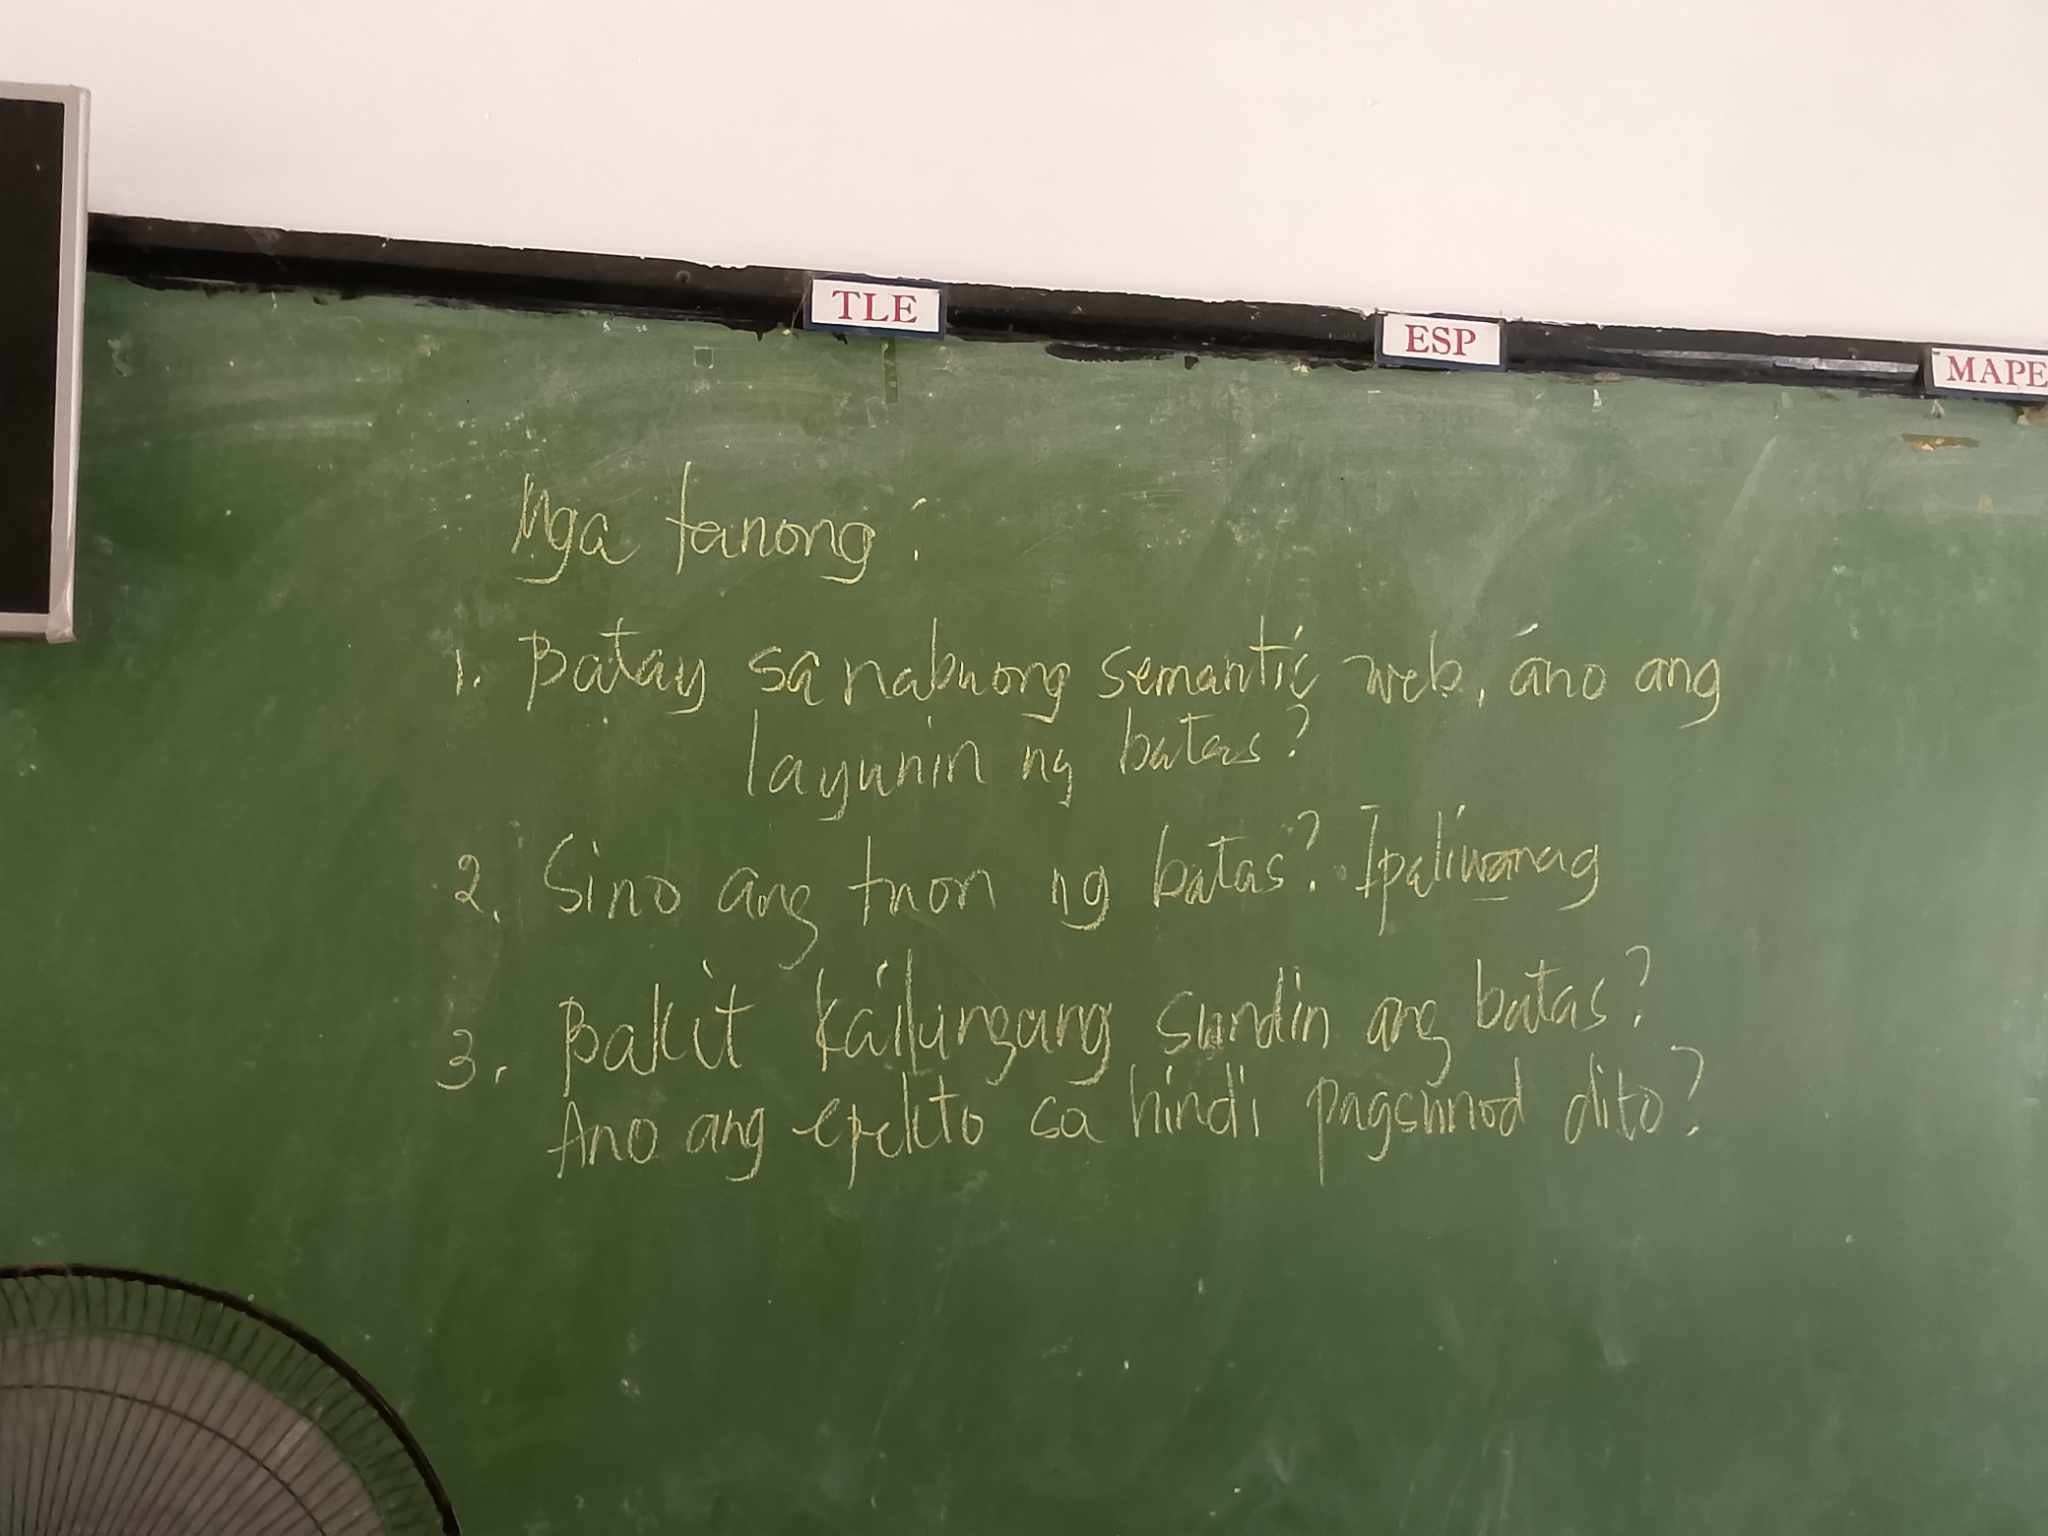 TLE
ESP
MAPE
Mga tanong:
1. Batay sa nabuong semantic web, ano ang
layunin ng batas?
2. Sino ang tuon ng batas? Ipaliwanag
3. Bakit kailangang sundin ang batas?
Ano ang epekto sa hindi pagsunod dito?